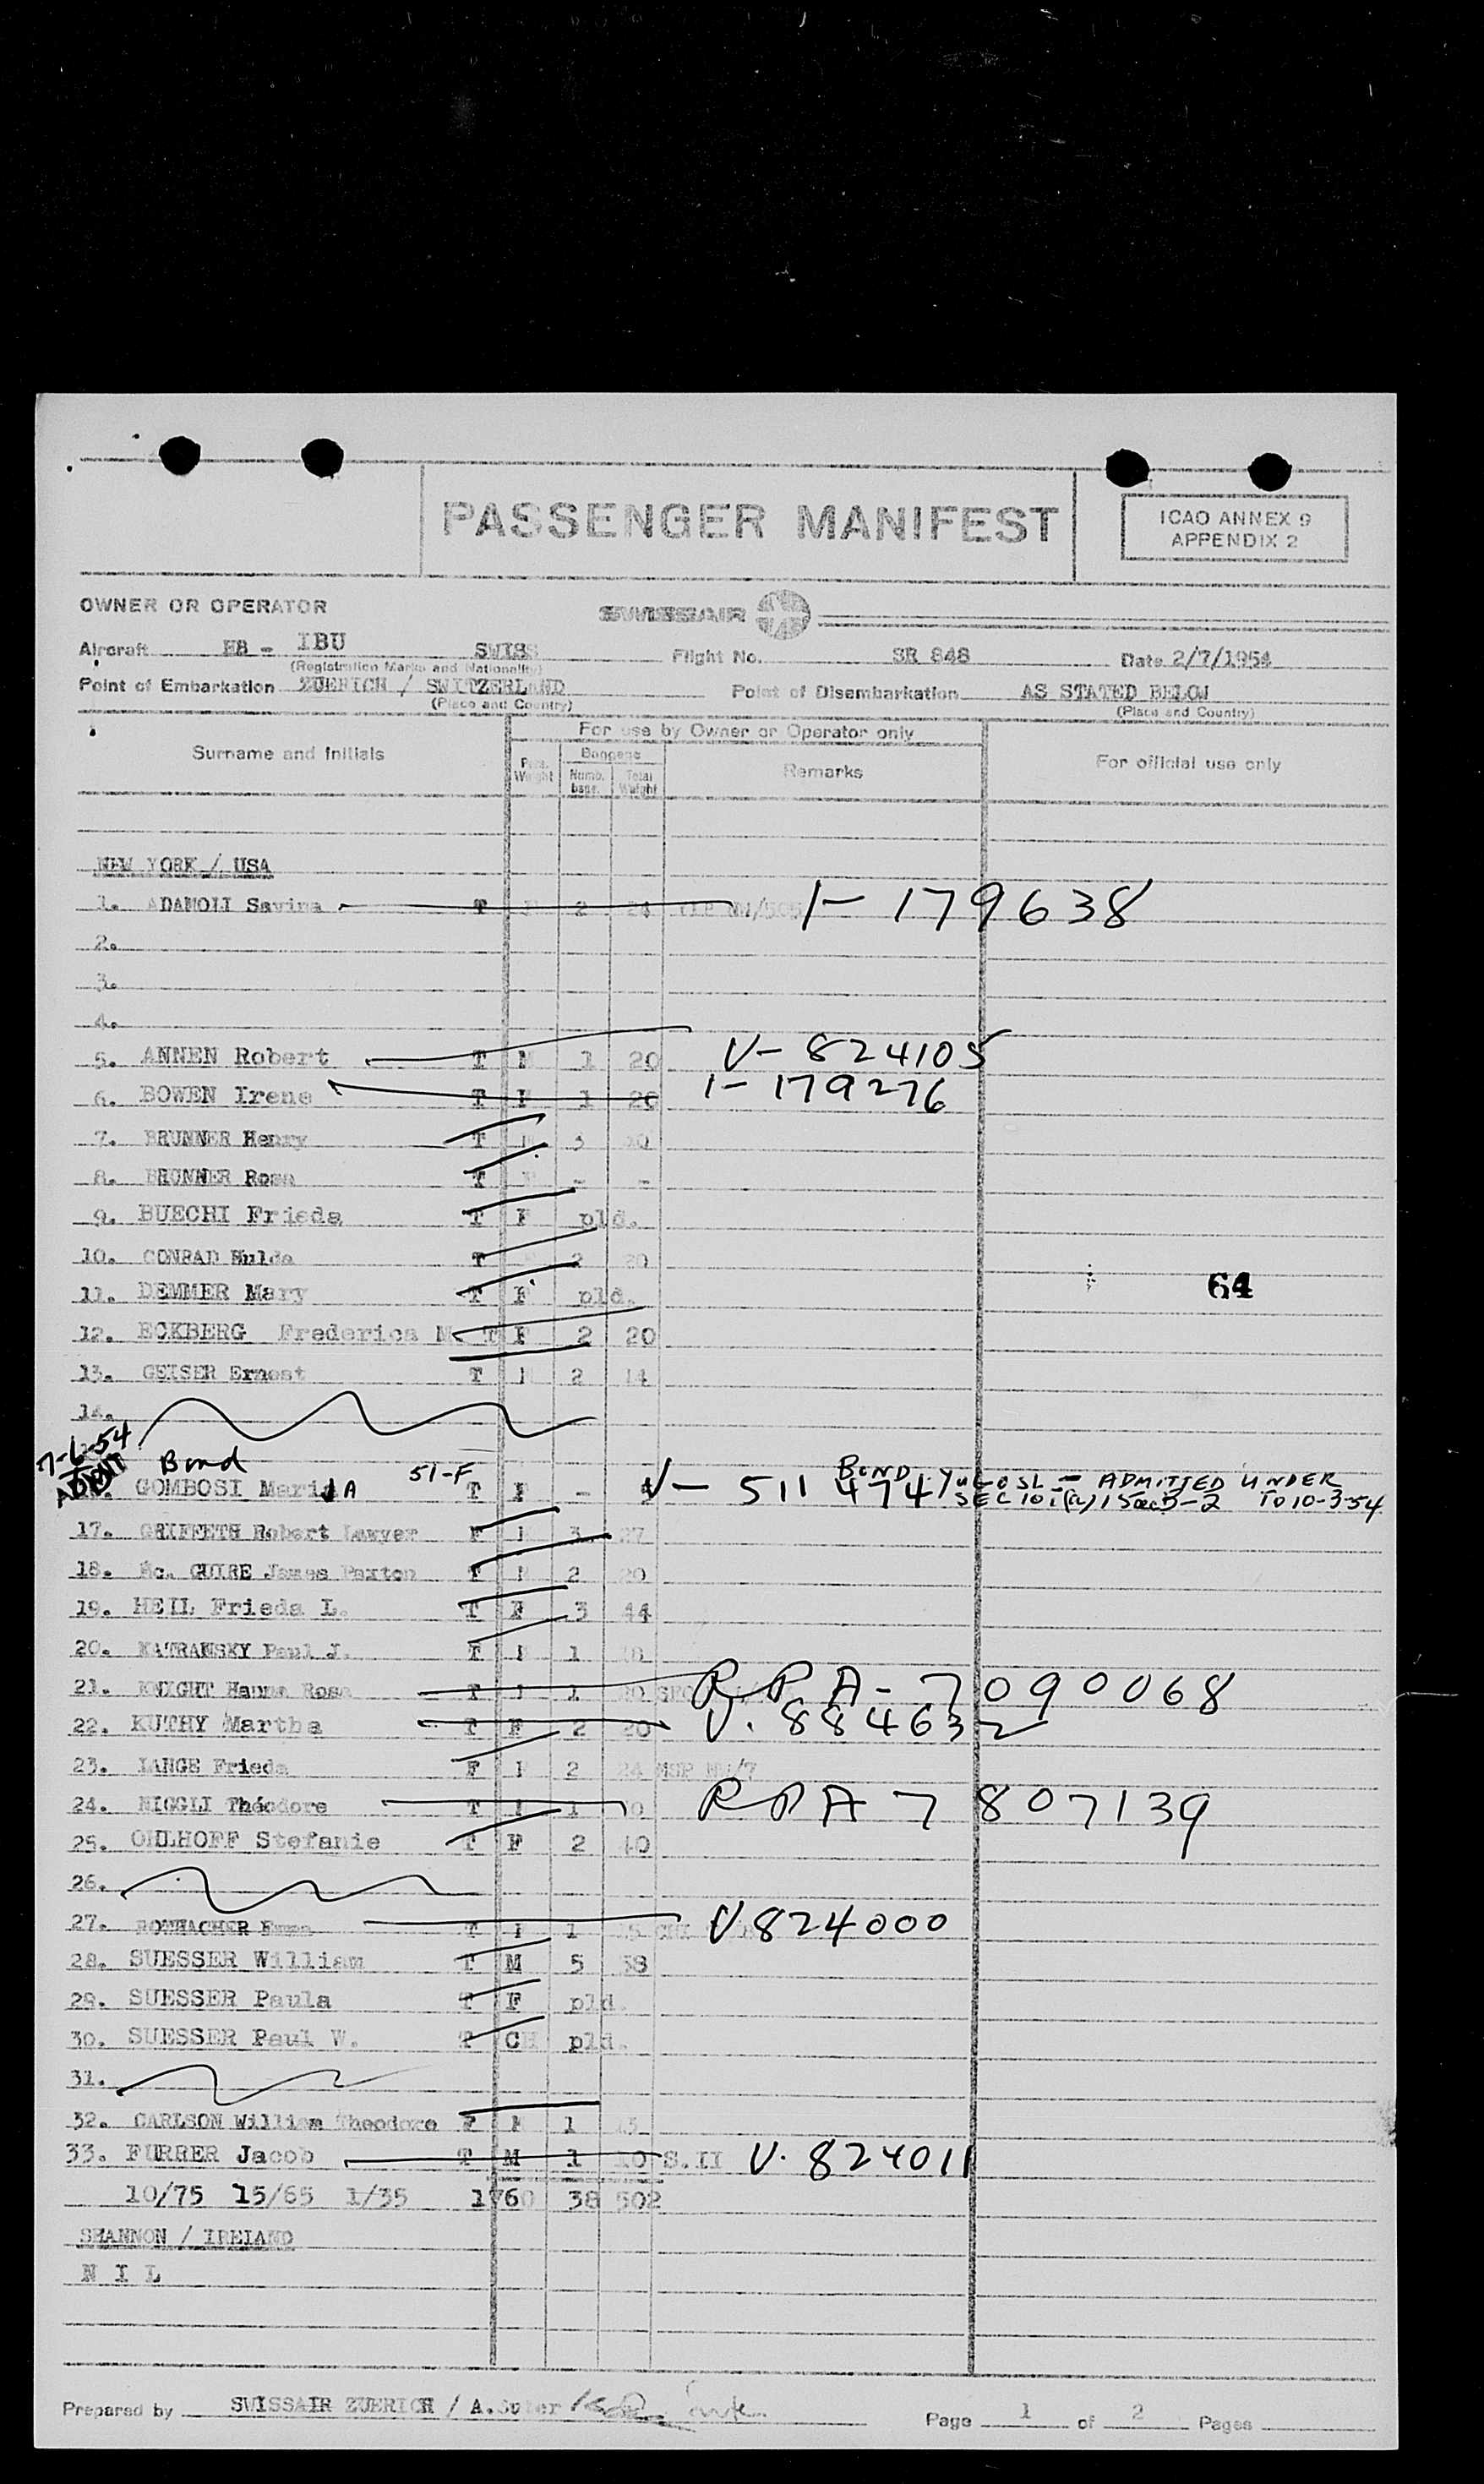 PASSENGER MANIFEST
ICAO ANNEX 9
APPENDIX 2
OWNER OR OPERATOR
SWISSAIR
Aircraft HB - IBU SWISS Flight No. SR 848 Date 2/7/1954
(Registration Marks and Nationality)
Point of Embarkation ZUERICH / SWITZERLAND Point of Disembarkation AS STATED BELOW
(Place and Country) (Place and Country)
For use by Owner or Operator only
Surname and Initials Pass. Weight Baggage Numb. bagg. Total Weight Remarks For official use only
NEW YORK / USA
1. ADAMOLI Savina T F 2 24 1- 179638
2.
3.
4.
5. ANNEN Robert T M 1 20 V- 824105
6. BOWEN Irene T F 1 20 1- 179276
7. BRUNNER Henry T M 3 20
8. BRUNNER Rosa T F - -
9. BUECHI Frieda T F pld.
10. CONRAD Hulda T 2 20
11. DEMMER Mary T F pld.
64
12. ECKBERG Frederica M. T F 2 20
13. GEISER Ernest T M 2 14
14.
7-6-54
ADMIT
Bond
GOMBOSI Maria A 51-F T F - V- 511 474 BOND YUGOSL - ADMITTED UNDER
SEC 101(a)15 B-2 TO 10-3-54
17. GRIFFETH Robert Lawyer F 3 27
18. Mc. GUIRE James Paxton T 2 20
19. HEIL Frieda L. T F 3 44
20. KATRANSKY Paul J. T 1 18
21. KNIGHT Hanna Rosa T 1 20 RPA- 7090068
22. KUTHY Martha T F 2 20 V. 884632
23. LANGE Frieda F 2 24 MSP NW/7
24. NIGGLI Théodore T 1 RPA 7 807139
25. OHLHOFF Stefanie T F 2 40
26.
27. ROTHACHER T 1 15 V 824000
28. SUESSER William T M 5 38
29. SUESSER Paula T F pld.
30. SUESSER Paul W. T CH pld.
31.
32. CARLSON William Theodore F M 1 15
33. FURRER Jacob T M 1 10 S.II V. 824011
10/75 15/65 1/35 1760 38 502
SHANNON / IRELAND
N I L
Prepared by SWISSAIR ZUERICH / A. Suter
Page 1 of 2 Pages